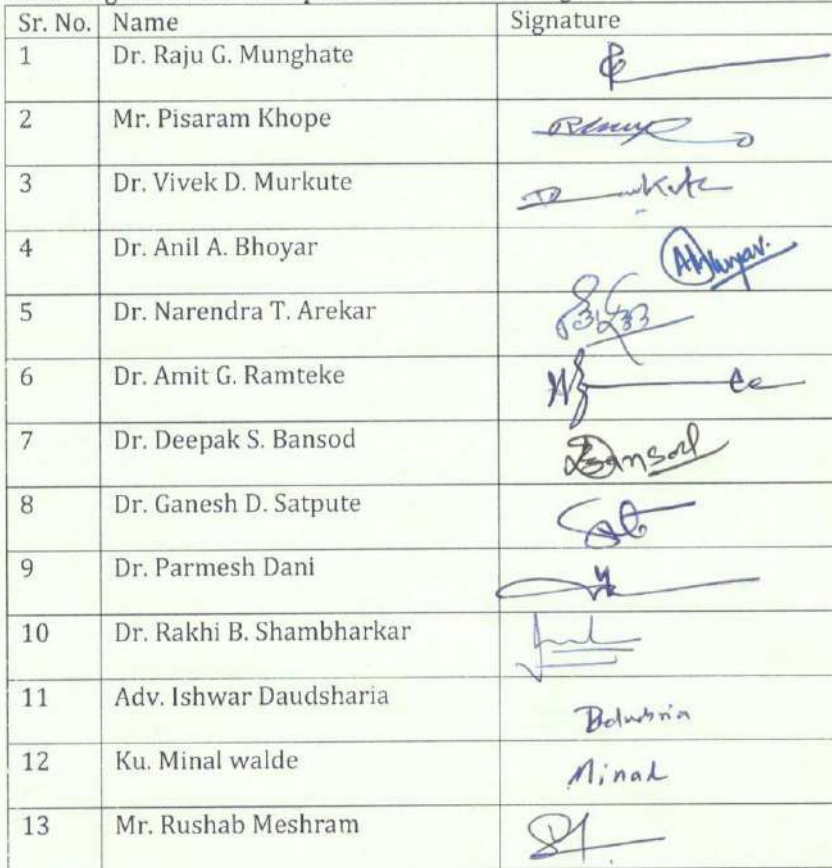 Sr. No. Name Signature
1 Dr. Raju G. Munghate
2 Mr. Pisaram Khope
3 Dr. Vivek D. Murkute
4 Dr. Anil A. Bhoyar
5 Dr. Narendra T. Arekar
6 Dr. Amit G. Ramteke
7 Dr. Deepak S. Bansod Bansod
8 Dr. Ganesh D. Satpute
9 Dr. Parmesh Dani
10 Dr. Rakhi B. Shambharkar
11 Adv. Ishwar Daudsharia
12 Ku. Minal walde Minal
13 Mr. Rushab Meshram